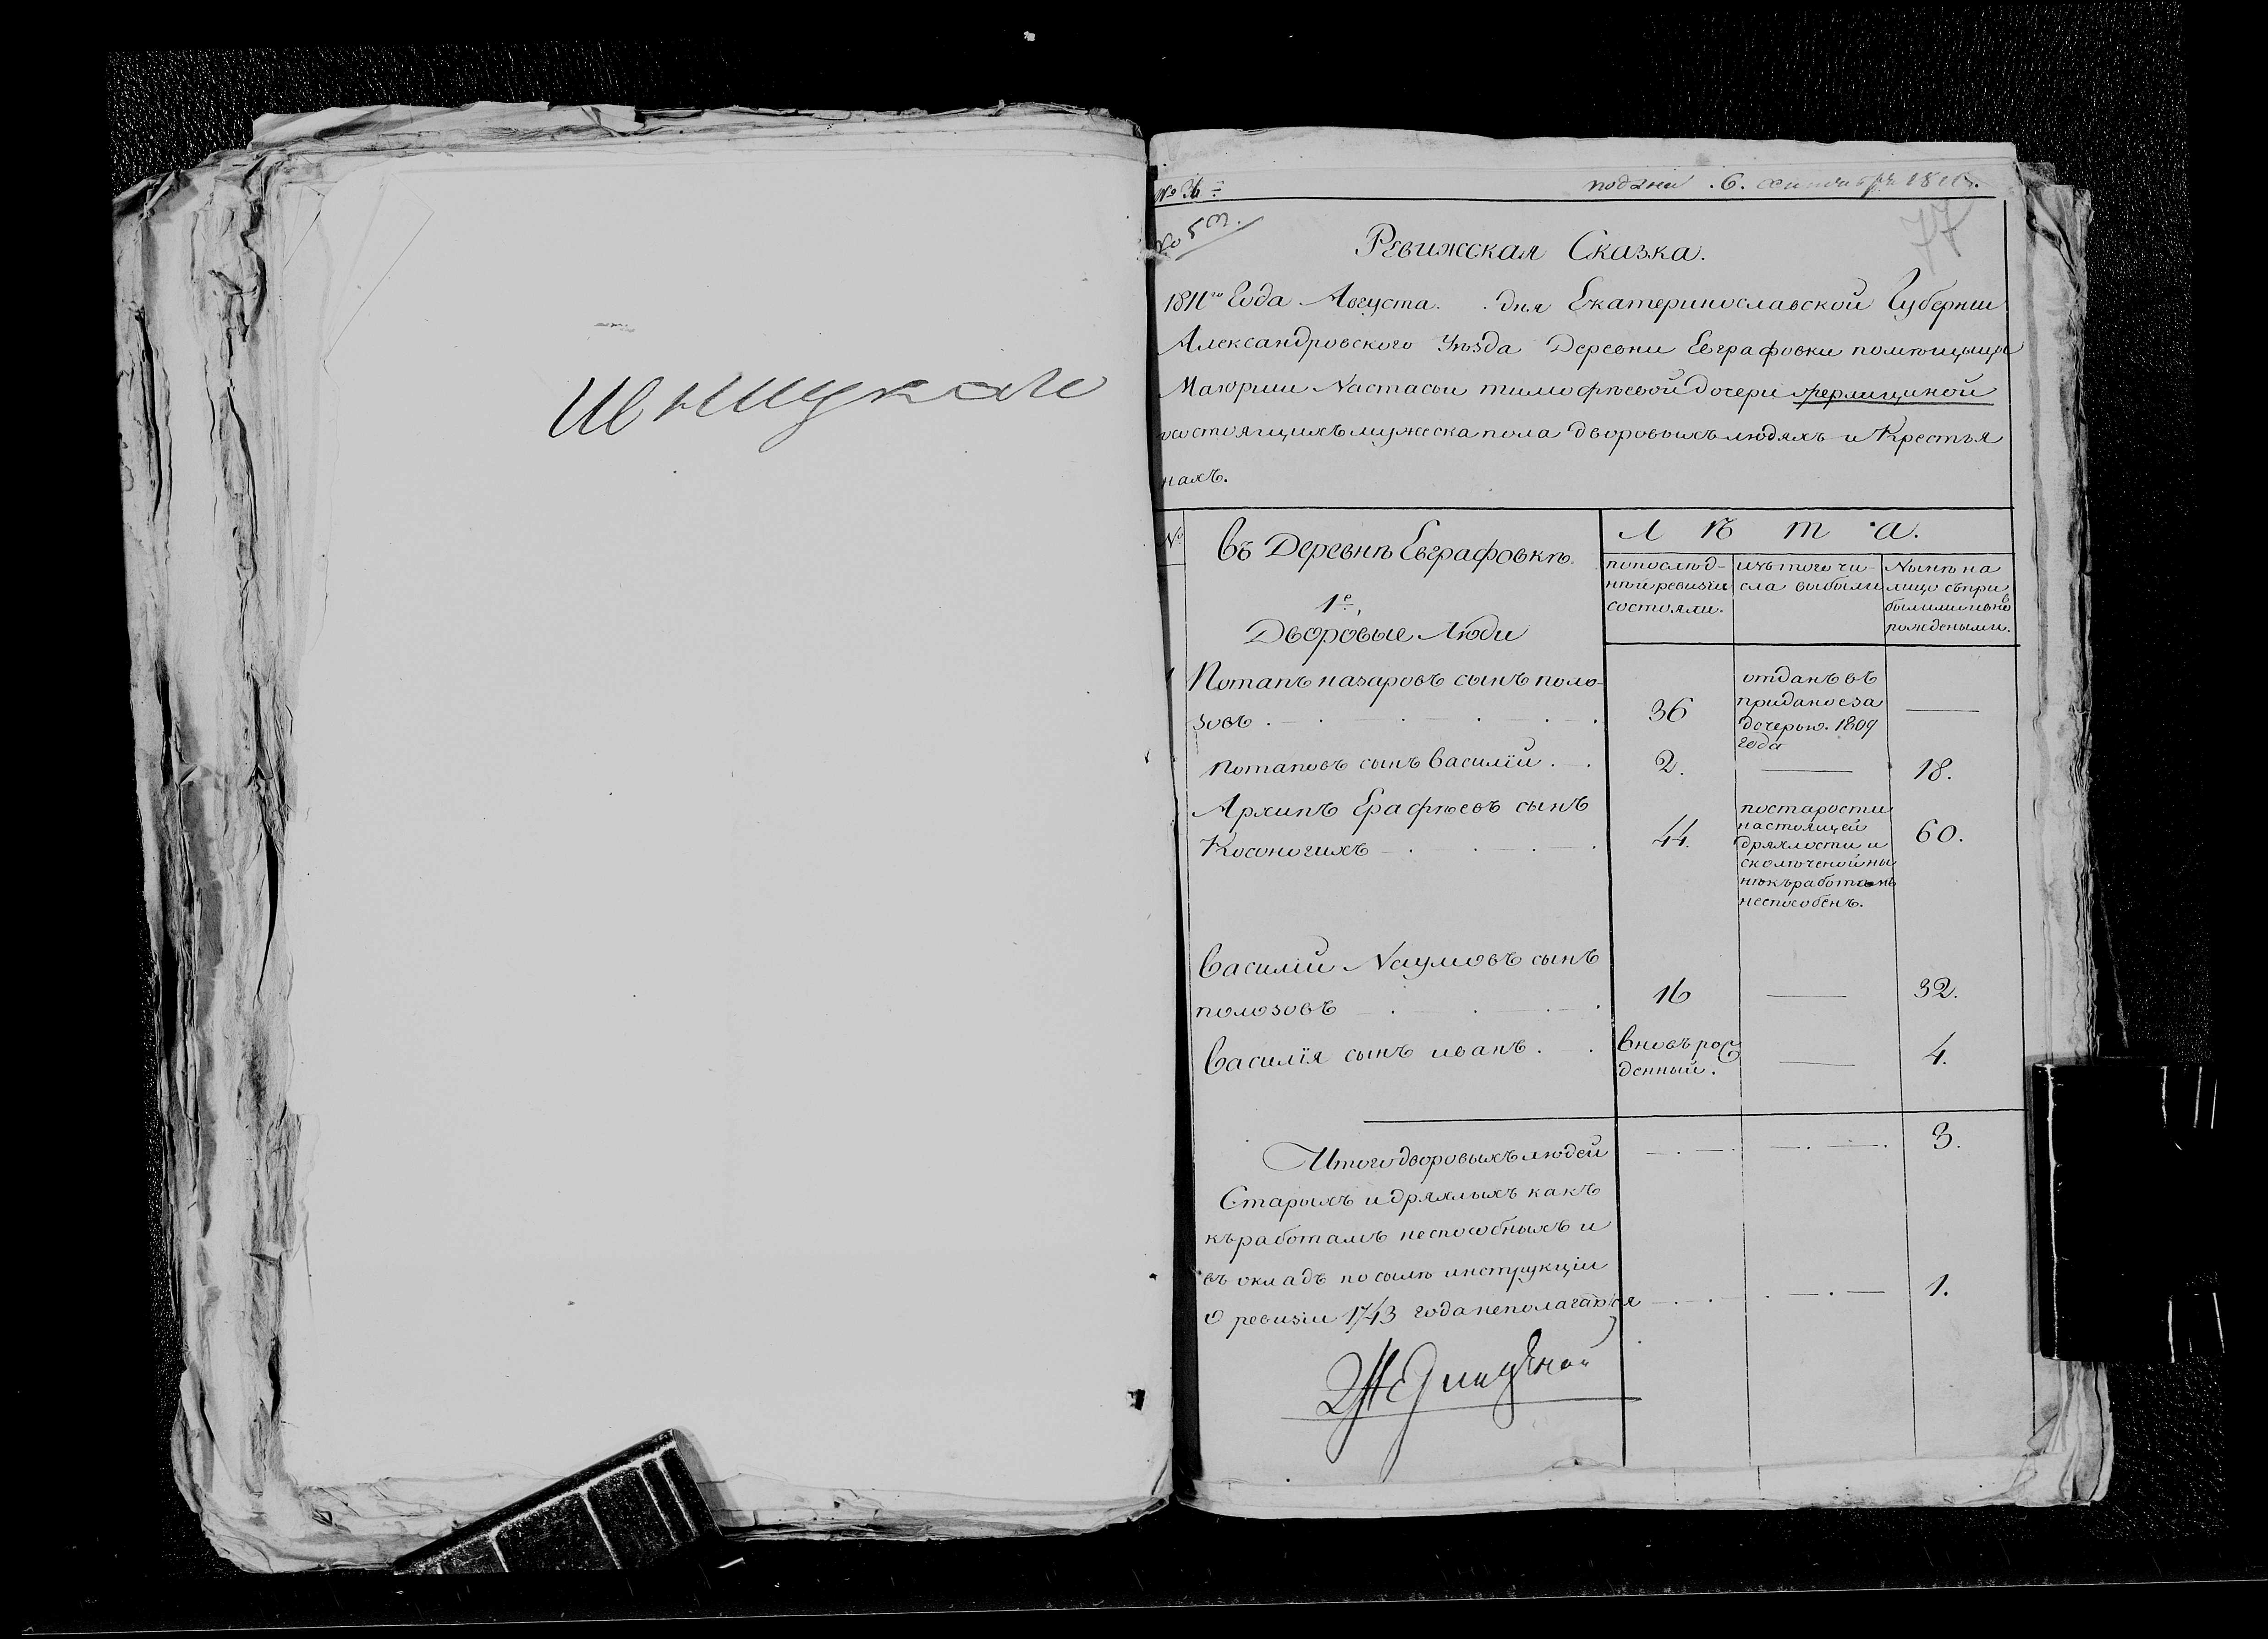 Ивницкаго
№ 36
подана .6. сентября 1811г.
№ 53.
77
Ревижская Сказка.
1811го Года Августа . дня Екатеринославской Губернии
Александровского Уѣзда Деревни Евграфовки помѣщицы
Маіорши Настасьи тимофѣевой дочери
состоящихъ мужеска пола дворовыхъ людяхъ и Крестья
нахъ.
№
въ Деревнѣ Евграфовкѣ.
Л ѣ т а.
попослѣд-
нѣй ревизіи
состояли.
изътого чи-
сла выбыли
Нынѣ на
лицо съпри
былыми ивно
в
рождеными.
1е,
Дворовые Люди
1 Потапъ назаровъ сынъ поло-
зовъ . . . . . .
36
отданъ въ
приданое за
дочерью. 1809
года
—
Потаповъ сынъ Василій . .
2.
—
18.
Архипъ Ерафѣевъ сынъ
Косоногихъ . . . .
44.
постарости
настоящей
дряхлости и
неспособенъ.
60.
Василій Наумовъ сынъ
полозовъ . . . .
16
—
32.
Василія сынъ иванъ . .
вновьрож
денный.
—
4.
Итого дворовыхъ людей
3.
Старыхъ идряхлыхъ какъ
къработамъ неспособныхъ и
въ окладъ по силѣ инструкціи
О ревизіи 1743 года неполагается
1.